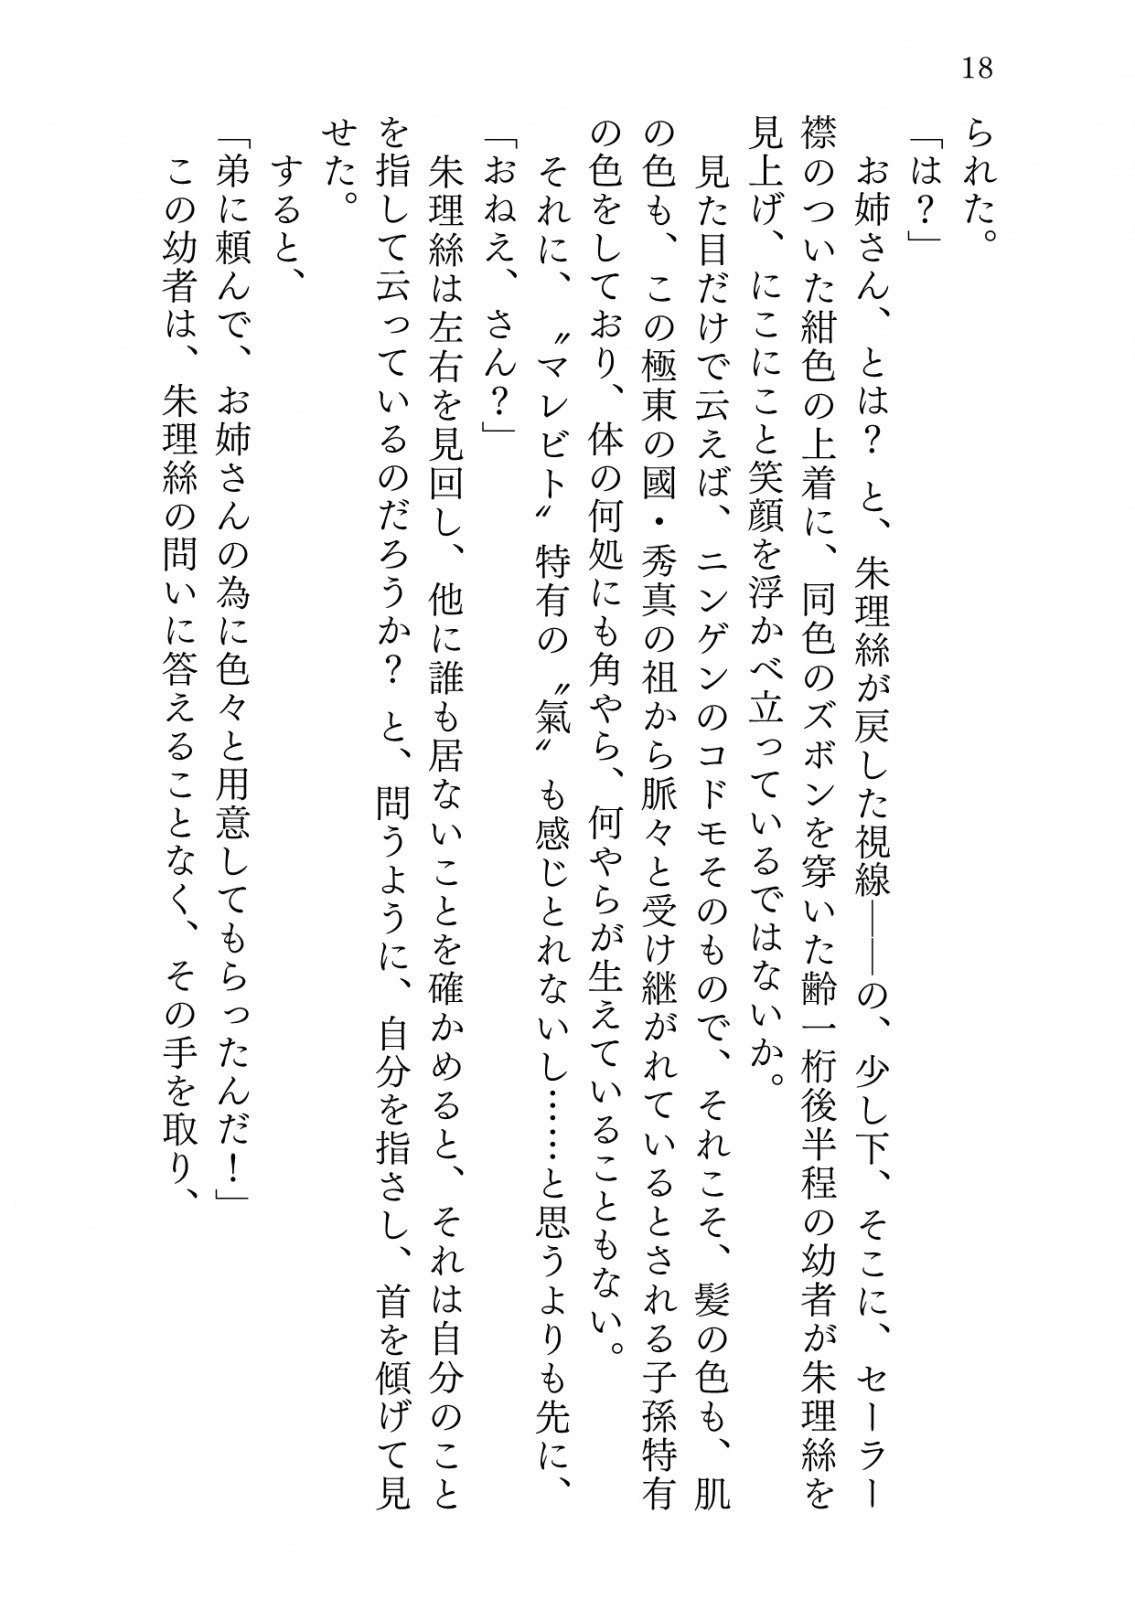 18
られた。
「は？」
　お姉さん、とは？　と、朱理絲が戻した視線――の、少し下、そこに、セーラー
襟のついた紺色の上着に、同色のズボンを穿いた齢一桁後半程の幼者が朱理絲を
見上げ、にこにこと笑顔を浮かべ立っているではないか。
　見た目だけで云えば、ニンゲンのコドモそのもので、それこそ、髪の色も、肌
の色も、この極東の國・秀真の祖から脈々と受け継がれているとされる子孫特有
の色をしており、体の何処にも角やら、何やらが生えていることもない。
　それに、〝マレビト〟特有の〝氣〟も感じとれないし……と思うよりも先に、
「おねえ、さん？」
　朱理絲は左右を見回し、他に誰も居ないことを確かめると、それは自分のこと
を指して云っているのだろうか？　と、問うように、自分を指さし、首を傾げて見
せた。
　すると、
「弟に頼んで、お姉さんの為に色々と用意してもらったんだ！」
　この幼者は、朱理絲の問いに答えることなく、その手を取り、